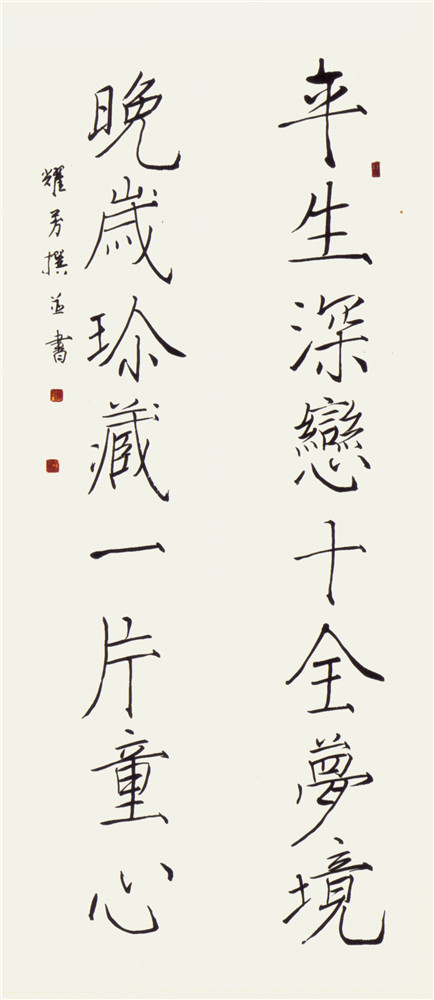 平生深戀十全夢境
晚歲珍藏一片童心
耀芳撰並書